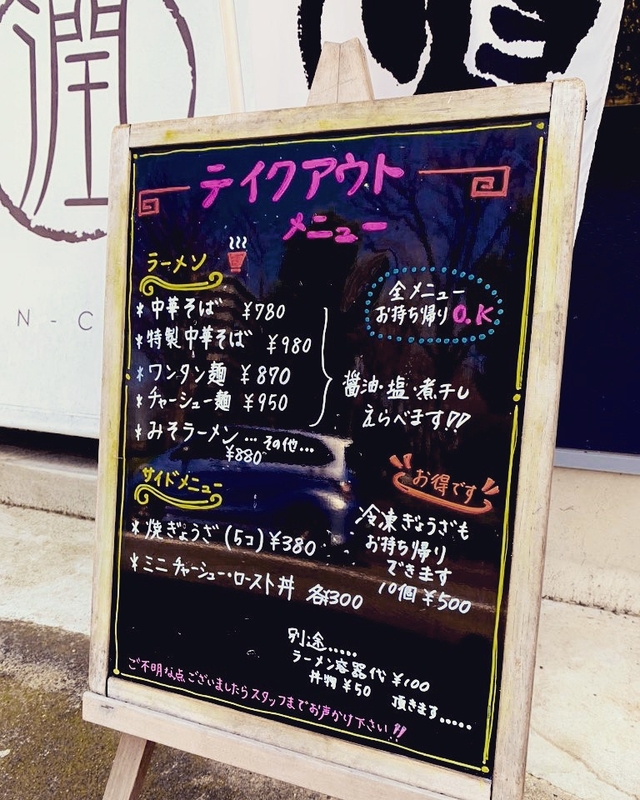 潤
N-C
テイクアウト
メニュー
ラーメン
全メニュー
お持ち帰りO.K
*中華そば ¥780
*特製中華そば ¥980
*ワンタン麺 ¥870
*チャーシュー麺 ¥950
醤油・塩・煮干し
えらべます
*みそラーメン…その他…
¥880
サイドメニュー
お得です
*焼ぎょうざ(5コ)¥380
*ミニチャーシュー・ロースト丼 各¥300
冷凍ぎょうざも
お持ち帰り
できます
10個¥500
別途.....
ラーメン容器代 ¥100
丼物 ¥50
頂きます.....
ご不明な点ございましたらスタッフまでお声かけ下さい!!